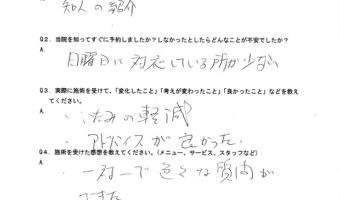 知人の紹介
Q2. 当院を知ってすぐに予約しましたか?しなかったとしたらどんなことが不安でしたか?
A
日曜日に対応している所が少ない
Q3. 実際に施術を受けて、「変化したこと」「考えが変わったこと」「良かったこと」などを教え
てください。
A.
・痛みの軽減
・アドバイスが良かった
Q4. 施術を受けた感想を教えてください。(メニュー、サービス、スタッフなど)
A
・一対一で色々な質問が
できた